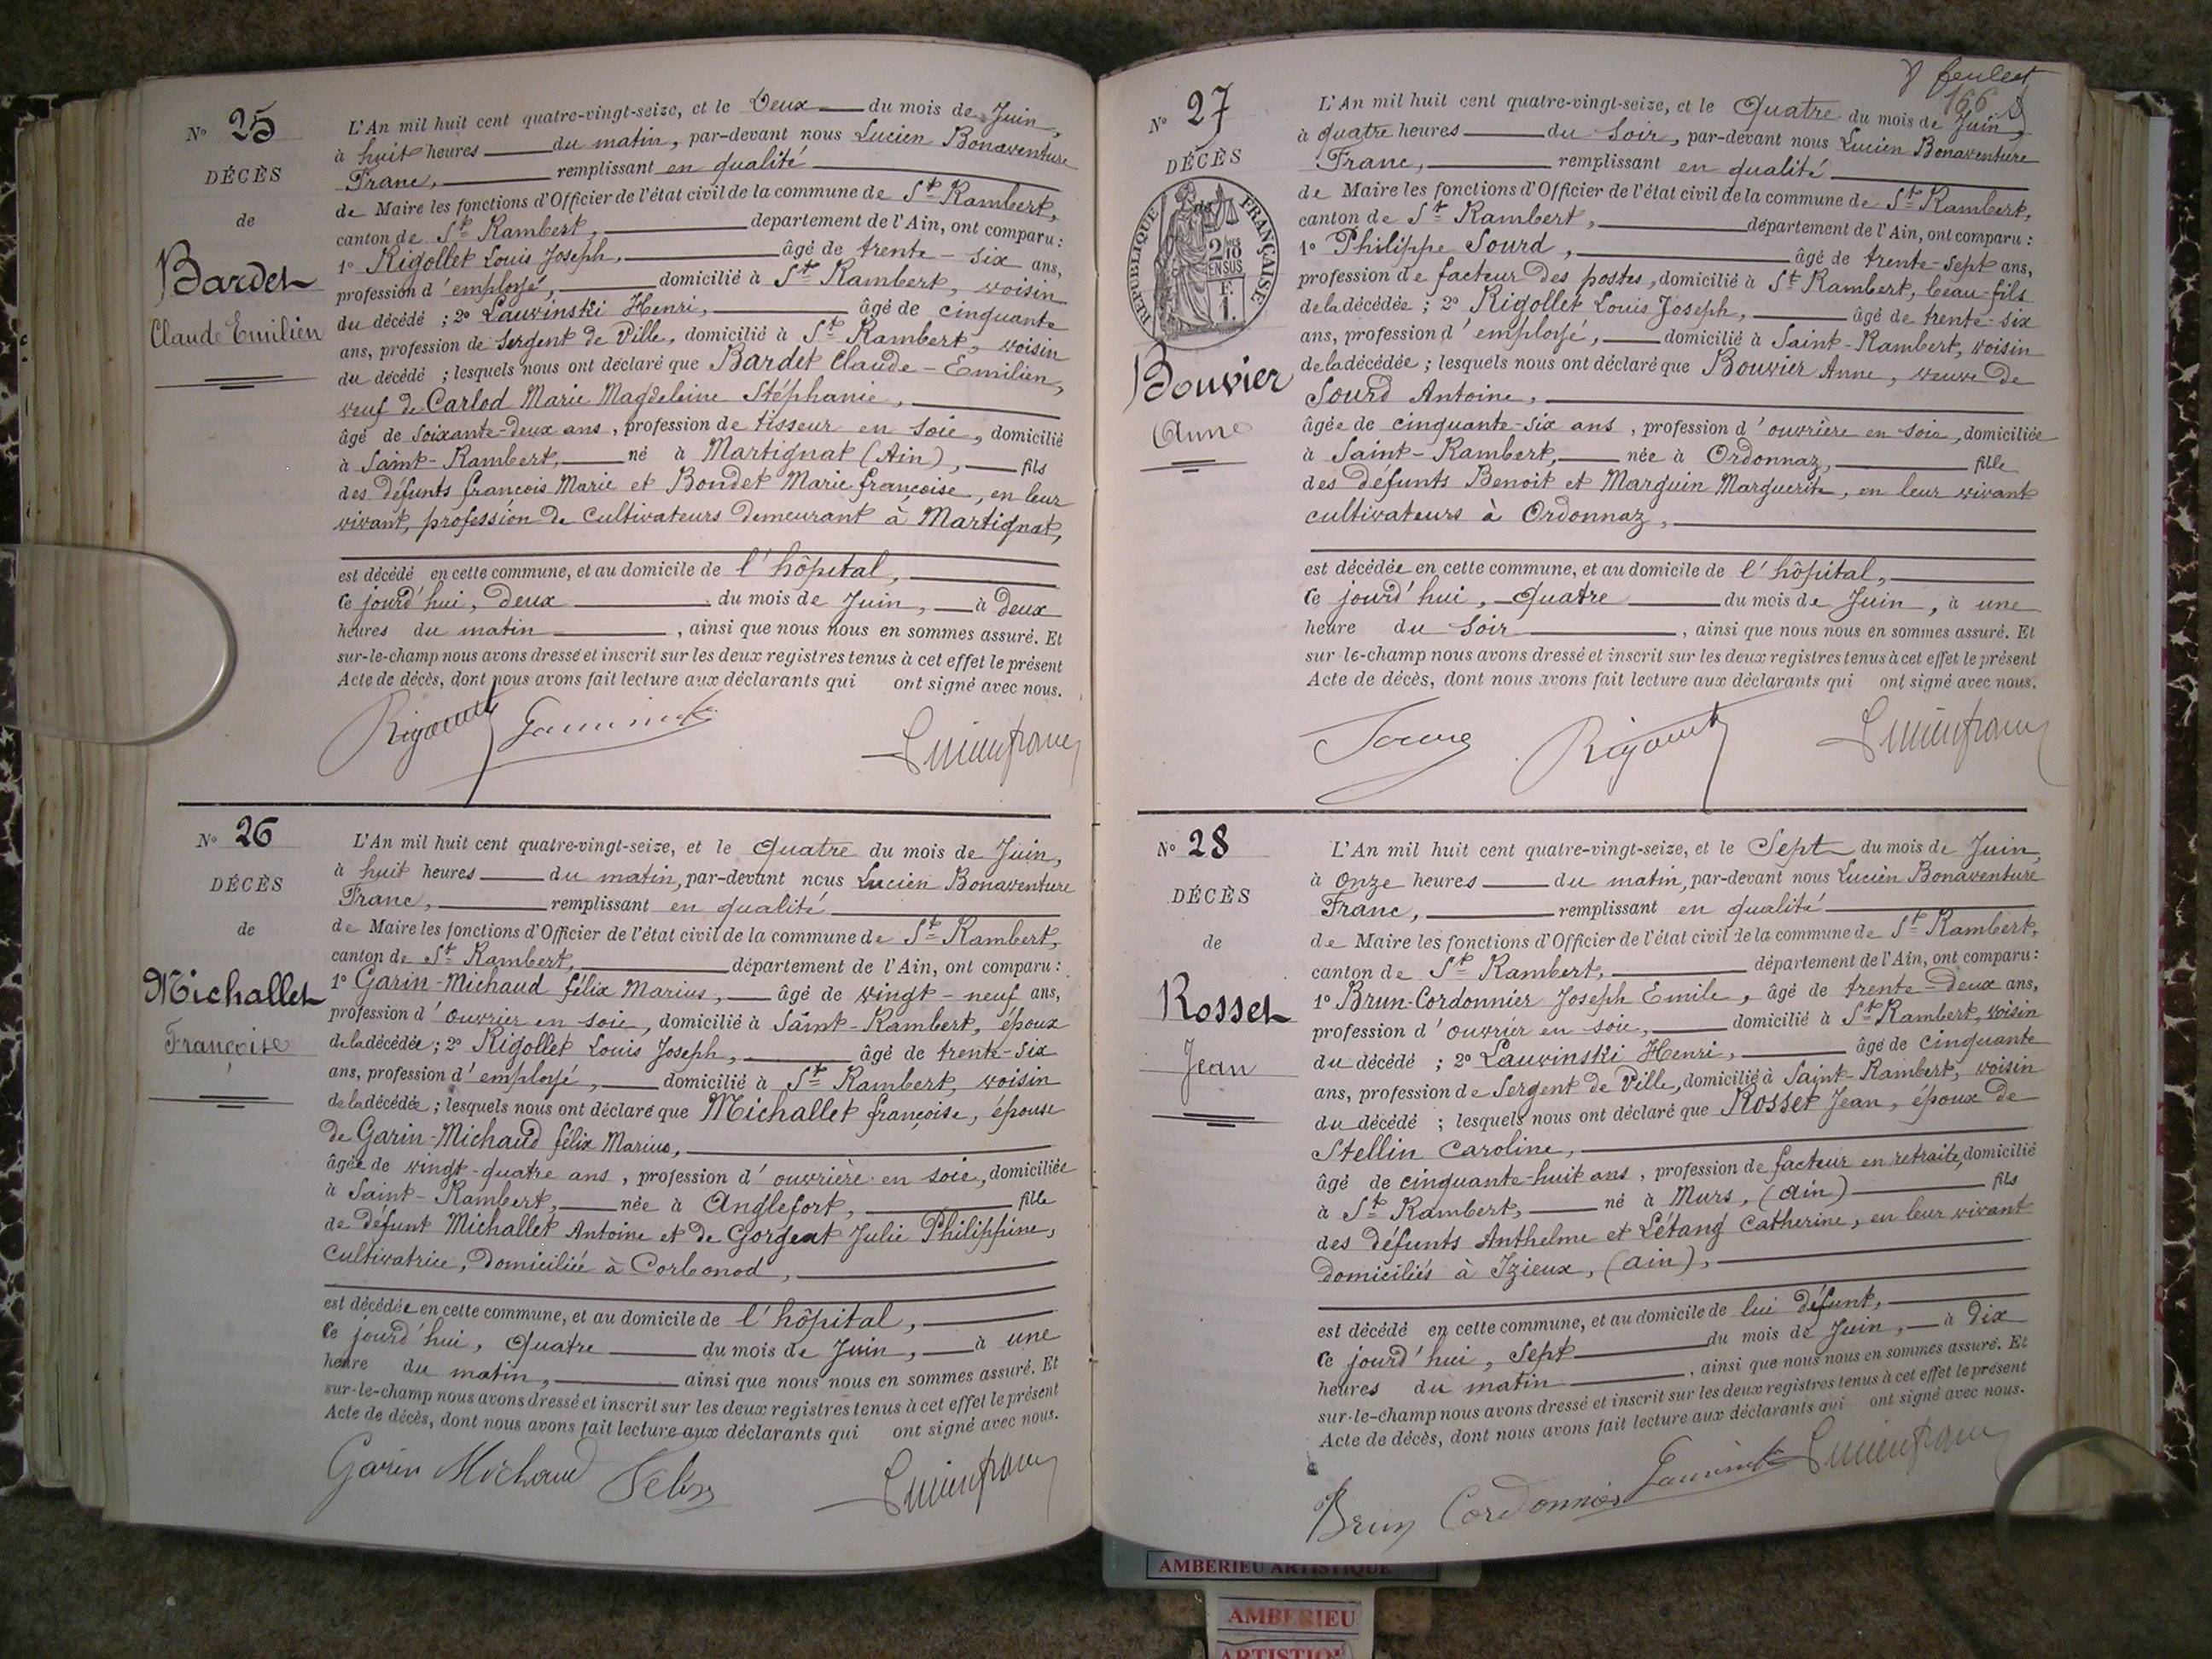 Nº 25
DÉCÈS
de
Bardet
Claude Emilien
L'An mil huit cent quatre-vingt-seize, et le Deux du mois de Juin,
à huit heures du matin, par-devant nous Lucien Bonaventure
Franc, remplissant en qualité
de Maire les fonctions d'Officier de l'état civil de la commune de St Rambert,
canton de St Rambert, département de l'Ain, ont comparu :
1º Rigollet Louis Joseph, âgé de trente-six ans,
profession d'employé, domicilié à St Rambert, voisin
du décédé ; 2º Lauvinski Henri, âgé de cinquante
ans, profession de Sergent de Ville, domicilié à St Rambert, voisin
du décédé ; lesquels nous ont déclaré que Bardet Claude-Emilien,
veuf de Carlod Marie Magdeleine Stéphanie,
âgé de soixante-deux ans, profession de tisseur en soie, domicilié
à Saint-Rambert, né à Martignat (Ain), fils
des défunts françois Marie et Bondet Marie françoise, en leur
vivant, profession de Cultivateurs demeurant à Martignat,
est décédé en cette commune, et au domicile de l'hôpital,
ce jourd'hui, deux du mois de Juin, à deux
heures du matin, ainsi que nous nous en sommes assuré. Et
sur-le-champ nous avons dressé et inscrit sur les deux registres tenus à cet effet le présent
Acte de décès, dont nous avons fait lecture aux déclarants qui ont signé avec nous.
Nº 26
DÉCÈS
de
Michallet
Françoise
L'An mil huit cent quatre-vingt-seize, et le Quatre du mois de Juin,
à huit heures du matin, par-devant nous Lucien Bonaventure
Franc, remplissant en qualité
de Maire les fonctions d'Officier de l'état civil de la commune de St Rambert,
canton de St Rambert, département de l'Ain, ont comparu :
1º Garin-Michaud félix Marius, âgé de vingt-neuf ans,
profession d'ouvrier en soie, domicilié à Saint-Rambert, époux
de la décédée ; 2º Rigollet Louis Joseph, âgé de trente-six
ans, profession d'employé, domicilié à St Rambert, voisin
de la décédée ; lesquels nous ont déclaré que Michallet françoise, épouse
de Garin-Michaud félix Marius,
âgée de vingt-quatre ans, profession d'ouvrière en soie, domiciliée
à Saint-Rambert, née à Anglefort, fille
de défunt Michallet Antoine et de Gorgeat Julie Philippine,
Cultivatrice, domiciliée à Corbonod,
est décédée en cette commune, et au domicile de l'hôpital,
ce jourd'hui, quatre du mois de Juin, à une
heure du matin, ainsi que nous nous en sommes assuré. Et
sur-le-champ nous avons dressé et inscrit sur les deux registres tenus à cet effet le présent
Acte de décès, dont nous avons fait lecture aux déclarants qui ont signé avec nous.
Garin Michaud Felix
feuillet
166
Nº 27
DÉCÈS
de
RÉPUBLIQUE FRANÇAISE
2/10 EN SUS
F.
1.
Bouvier
Anne
L'An mil huit cent quatre-vingt-seize, et le Quatre du mois de Juin,
à quatre heures du soir, par-devant nous Lucien Bonaventure
Franc, remplissant en qualité
de Maire les fonctions d'Officier de l'état civil de la commune de St Rambert,
canton de St Rambert, département de l'Ain, ont comparu :
1º Philippe Sourd, âgé de trente-sept ans,
profession de facteur des postes, domicilié à St Rambert, beau-fils
de la décédée ; 2º Rigollet Louis Joseph, âgé de trente-six
ans, profession d'employé, domicilié à Saint-Rambert, voisin
de la décédée ; lesquels nous ont déclaré que Bouvier Anne, veuve de
Sourd Antoine,
âgée de cinquante-six ans, profession d'ouvrière en soie, domiciliée
à Saint-Rambert, née à Ordonnaz, fille
des défunts Benoit et Marguin Marguerite, en leur vivant
cultivateurs à Ordonnaz,
est décédée en cette commune, et au domicile de l'hôpital,
ce jourd'hui, quatre du mois de Juin, à une
heure du soir, ainsi que nous nous en sommes assuré. Et
sur-le-champ nous avons dressé et inscrit sur les deux registres tenus à cet effet le présent
Acte de décès, dont nous avons fait lecture aux déclarants qui ont signé avec nous.
Nº 28
DÉCÈS
de
Rosset
Jean
L'An mil huit cent quatre-vingt-seize, et le Sept du mois de Juin,
à onze heures du matin, par-devant nous Lucien Bonaventure
Franc, remplissant en qualité
de Maire les fonctions d'Officier de l'état civil de la commune de St Rambert,
canton de St Rambert, département de l'Ain, ont comparu :
1º Brun-Cordonnier Joseph Emile, âgé de trente-deux ans,
profession d'ouvrier en soie, domicilié à St Rambert, voisin
du décédé ; 2º Lauvinski Henri, âgé de cinquante
ans, profession de Sergent de Ville, domicilié à Saint-Rambert, voisin
du décédé ; lesquels nous ont déclaré que Rosset Jean, époux de
Stellin Caroline,
âgé de cinquante-huit ans, profession de facteur en retraite, domicilié
à St Rambert, né à Murs, (ain) fils
des défunts Anthelme et Létang Catherine, en leur vivant
domiciliés à Izieux, (ain),
est décédé en cette commune, et au domicile de lui défunt,
ce jourd'hui, sept du mois de Juin, à dix
heures du matin, ainsi que nous nous en sommes assuré. Et
sur-le-champ nous avons dressé et inscrit sur les deux registres tenus à cet effet le présent
Acte de décès, dont nous avons fait lecture aux déclarants qui ont signé avec nous.
Brun Cordonnier
AMBERIEU ARTISTIQUE
AMBERIEU